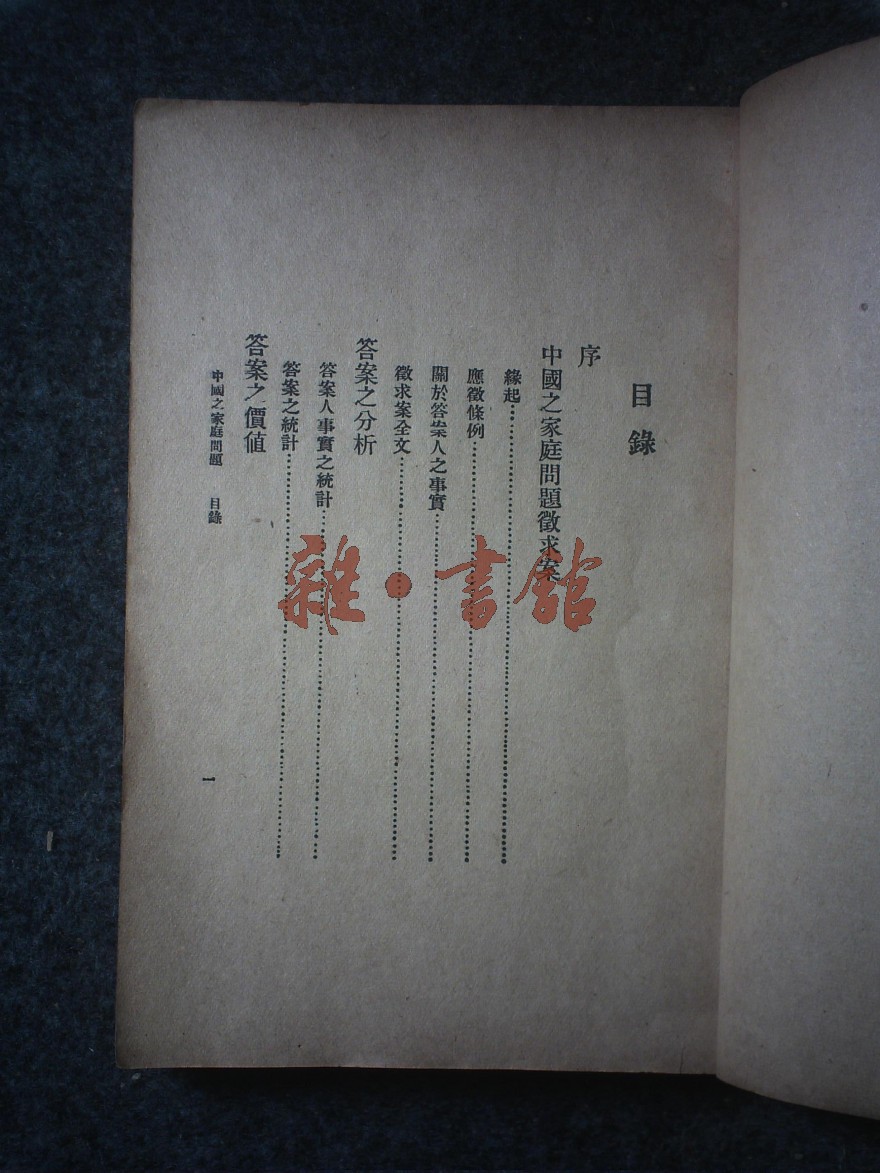 目錄
序
中國之家庭問題徵求案
緣起
應徵條例
關於答案人之事實
徵求案全文
答案之分析
答案人事實之統計
答案之統計
答案之價値
中國之家庭問題 目錄
一
雜·書館